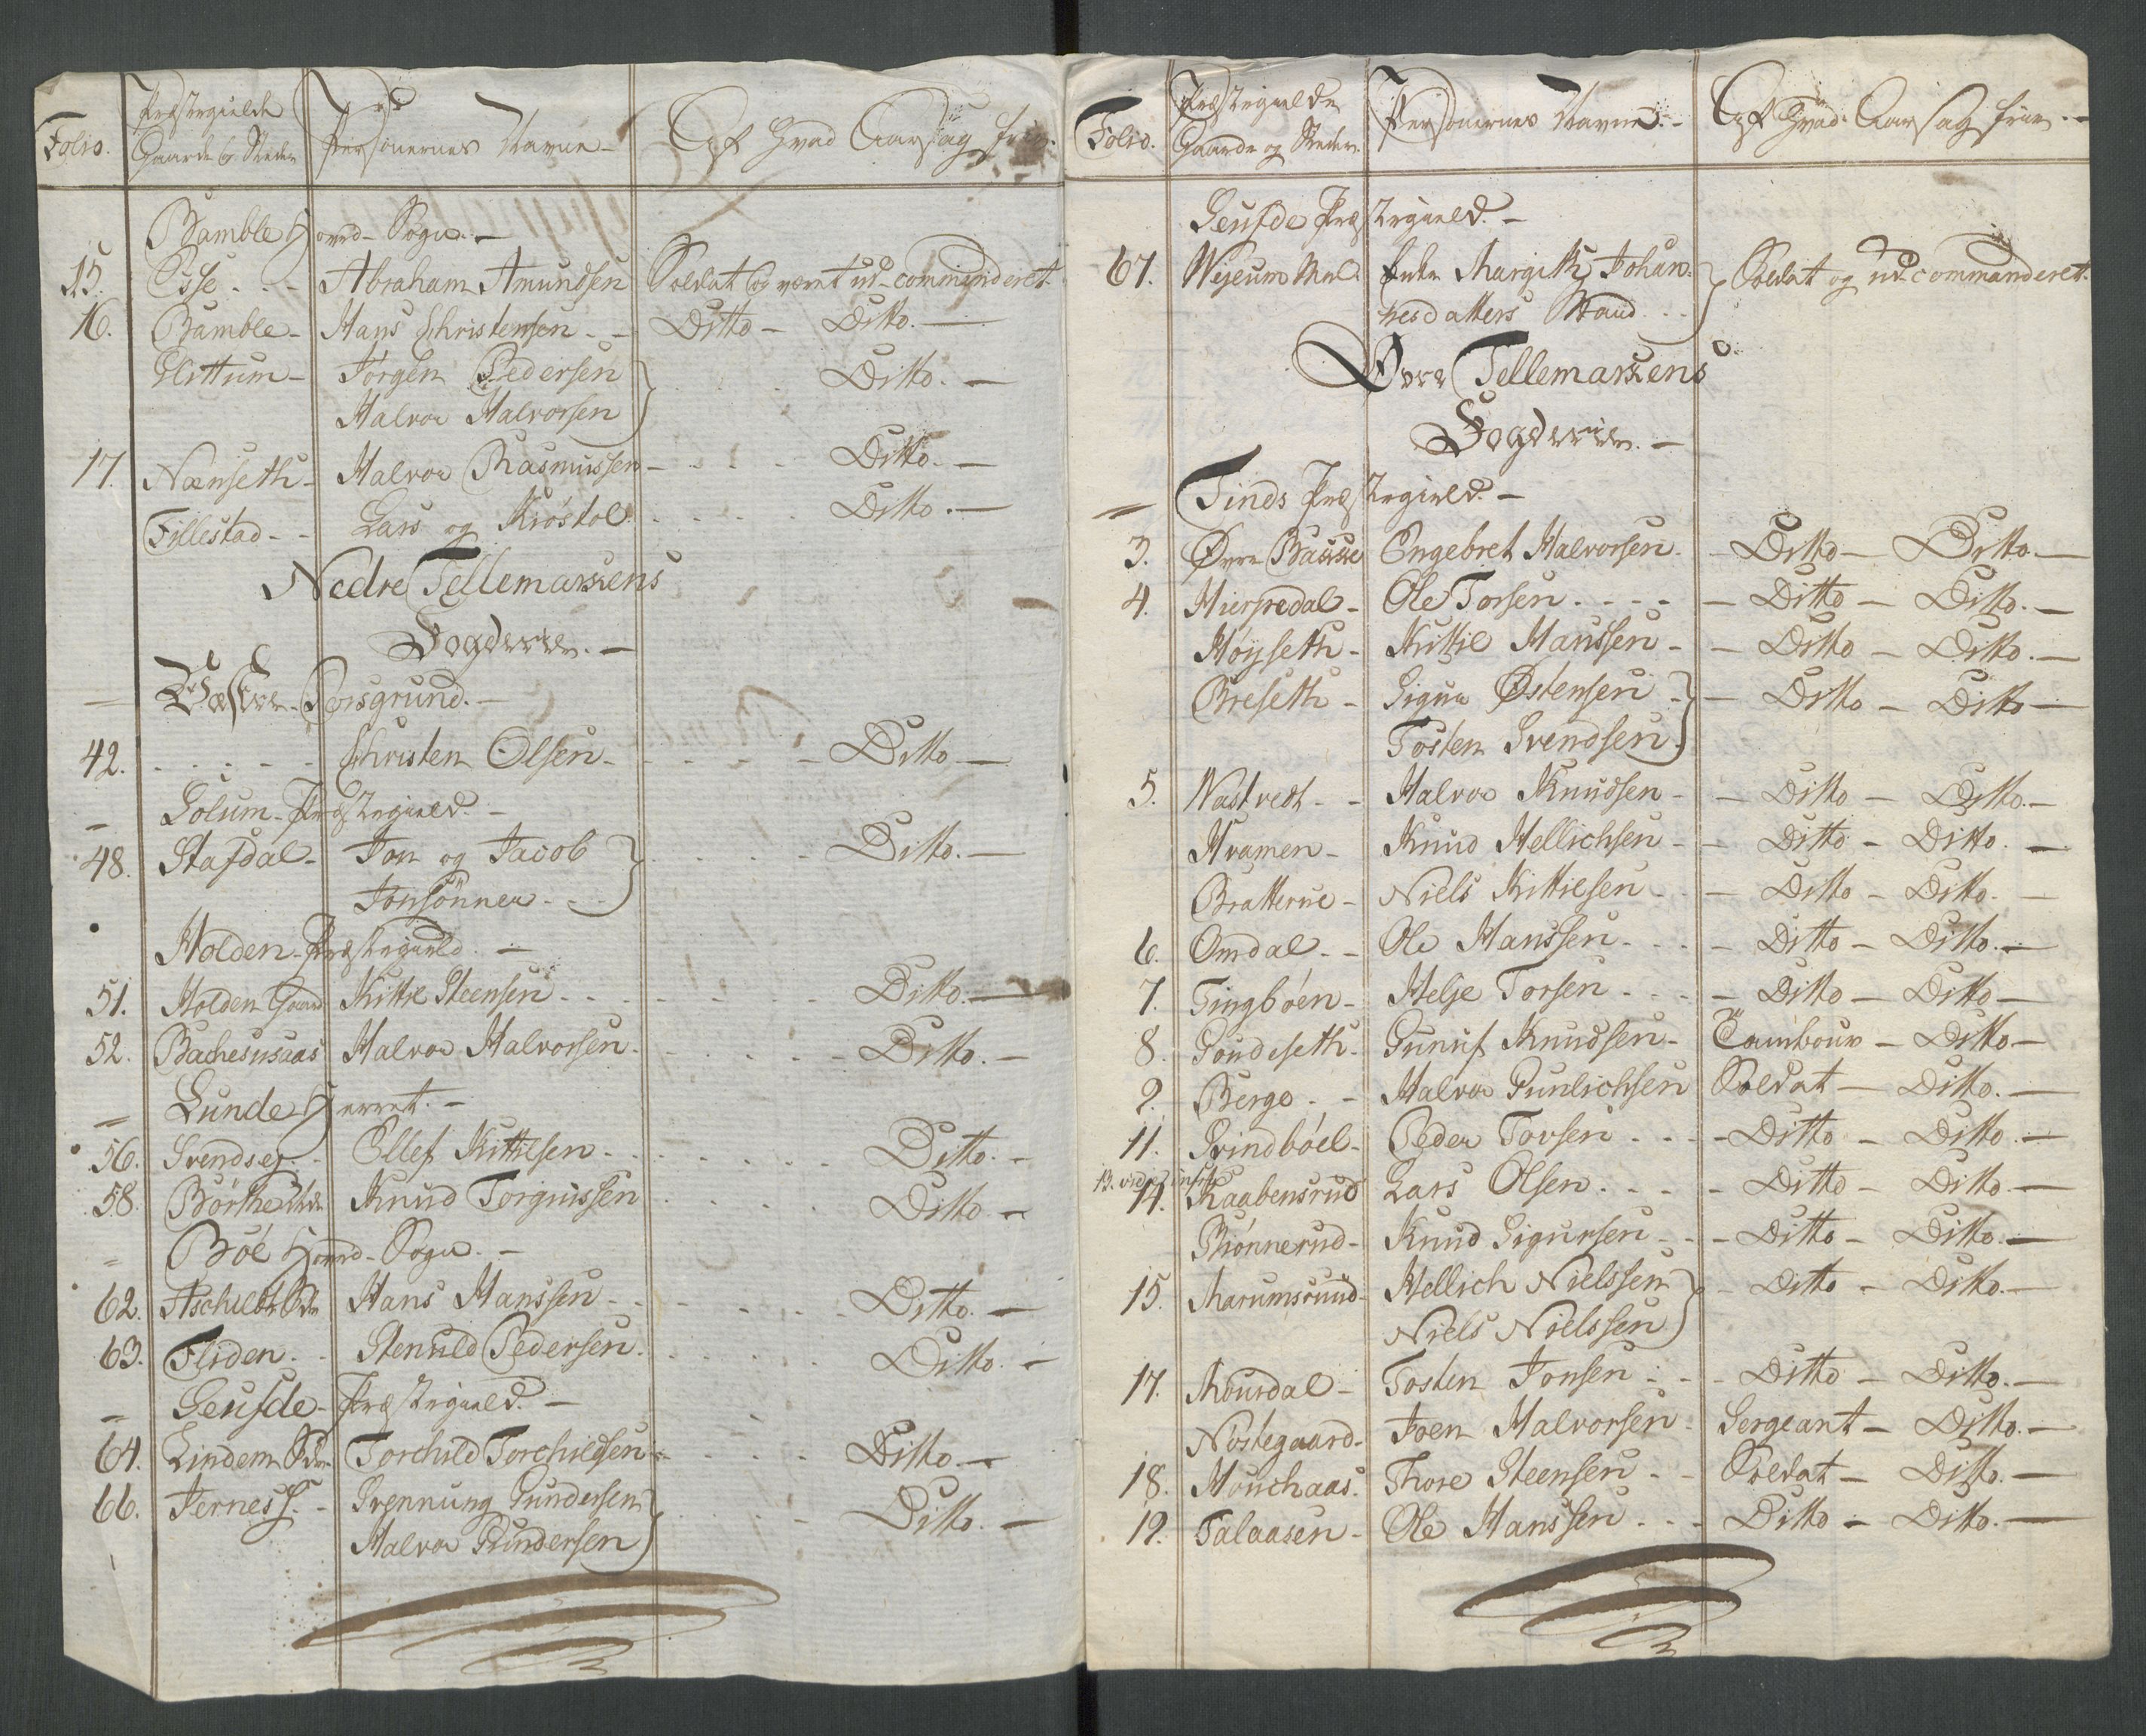 Folio. Præstegielde Gaarde og Steder Personernes Navne Af Hvad Aarsag frie.
Bamble Hoved-Sogn.
15. Osse Abraham Amundsen Soldat og været ud-commenderet
16. Bamble Hans Christensen Ditto Ditto.
Glittum Jørgen Pedersen Ditto.
Halvor Halvorsen
17. Nænseth Halvor Rasmussen Ditto.
Fillestad Lars og Kiøstol Ditto.
Nedre Tellemarkens
Fogderie.
Westre Porsgrund.
42. Christen Olsen Ditto
Solum Præstegield.
48. Stafdal Jon og Jacob Ditto.
Jonsønner
Holden Præstegield.
51. Holden Gaard Kittil Steensen Ditto.
52. Bachesusaas Halvor Halvorsen Ditto.
Lunde Herret.
56. Svendsej Ellef Kittilsen Ditto.
58. Børthe Knud Torgiussen Ditto
Bøe Hoved-Sogn.
62. Hans Hanssen Ditto.
63. Fliden Stenuld Pedersen Ditto.
Geusde Præstegield.
64. Lindem Torchild Torchildsen Ditto.
66. Jerness Svennung Gundersen Ditto.
Halvor Gundersen
Folio. Præstegielde Gaarde og Steder. Personernes Navne. Af Hvad Aarsag frie.
Geusde Præstegield.
67. Wejeum Margith Johan- Soldat og ud-commanderet.
nesdatters Mand
Øvre Tellemarkens
Fogderie.
Tinds Præstegield.
3. Øvre Engebret Halvorsen Ditto Ditto.
4. Mierpedal Ole Torsen Ditto Ditto.
Høyseth Kittil Hanssen Ditto Ditto.
Breseth Sigur Østensen Ditto Ditto
Tosten Svendsen
5. Nastvedt Halvor Knudsen Ditto Ditto.
Hvamen Knud Hellichsen Ditto Ditto.
Bratterue Niels Kittilsen Ditto Ditto.
6. Omdal Ole Hanssen Ditto Ditto.
7. Tingbøen Helje Torsen Ditto Ditto
8. Goudeseth Gunuf Knudsen Tambour Ditto
9. Bergo Halvor Gunlichsen Soldat Ditto.
11. Grindbøel Peder Torsen Ditto Ditto.
14. Raabensrud Lars Olsen Ditto Ditto.
Biønnerud Knud Sigursen Ditto Ditto.
15. Marumsruud Hellich Nielssen Ditto Ditto.
Niels Nielssen
17. Mourdal Tosten Jonsen Ditto Ditto.
Nøstegaard Joen Halvorsen Sergeant Ditto.
18. Houchaas Thore Steensen Soldat Ditto.
19. Talaasen Ole Hanssen Ditto Ditto.